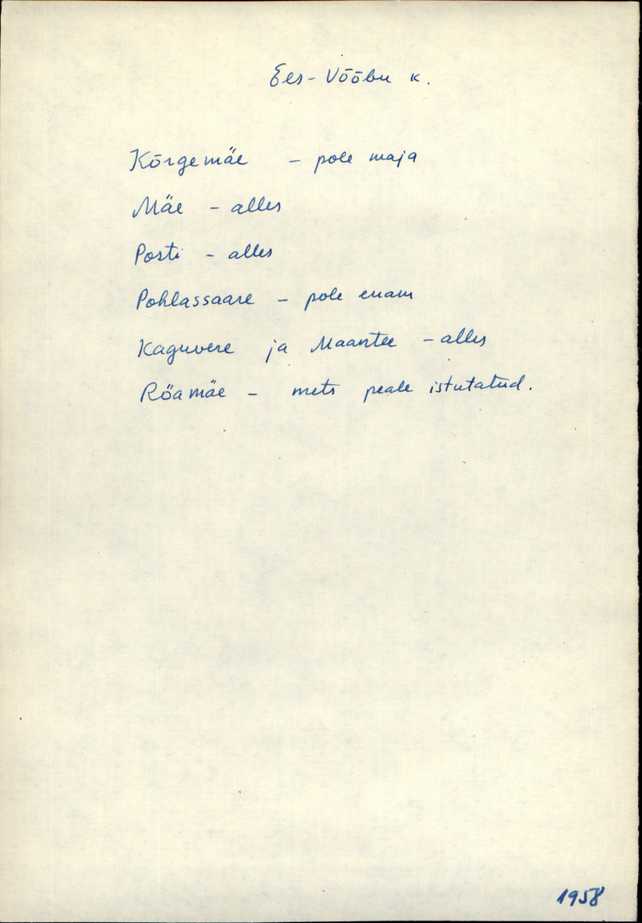 Ees-Võõbu k.
Kõrgemäe - pole maja
Mäe - alles
Posti - alles
Pohlassaare - pole enam
Kaguvere ja Maantee - alles
Röamäe - mets peale istutatud.
1958